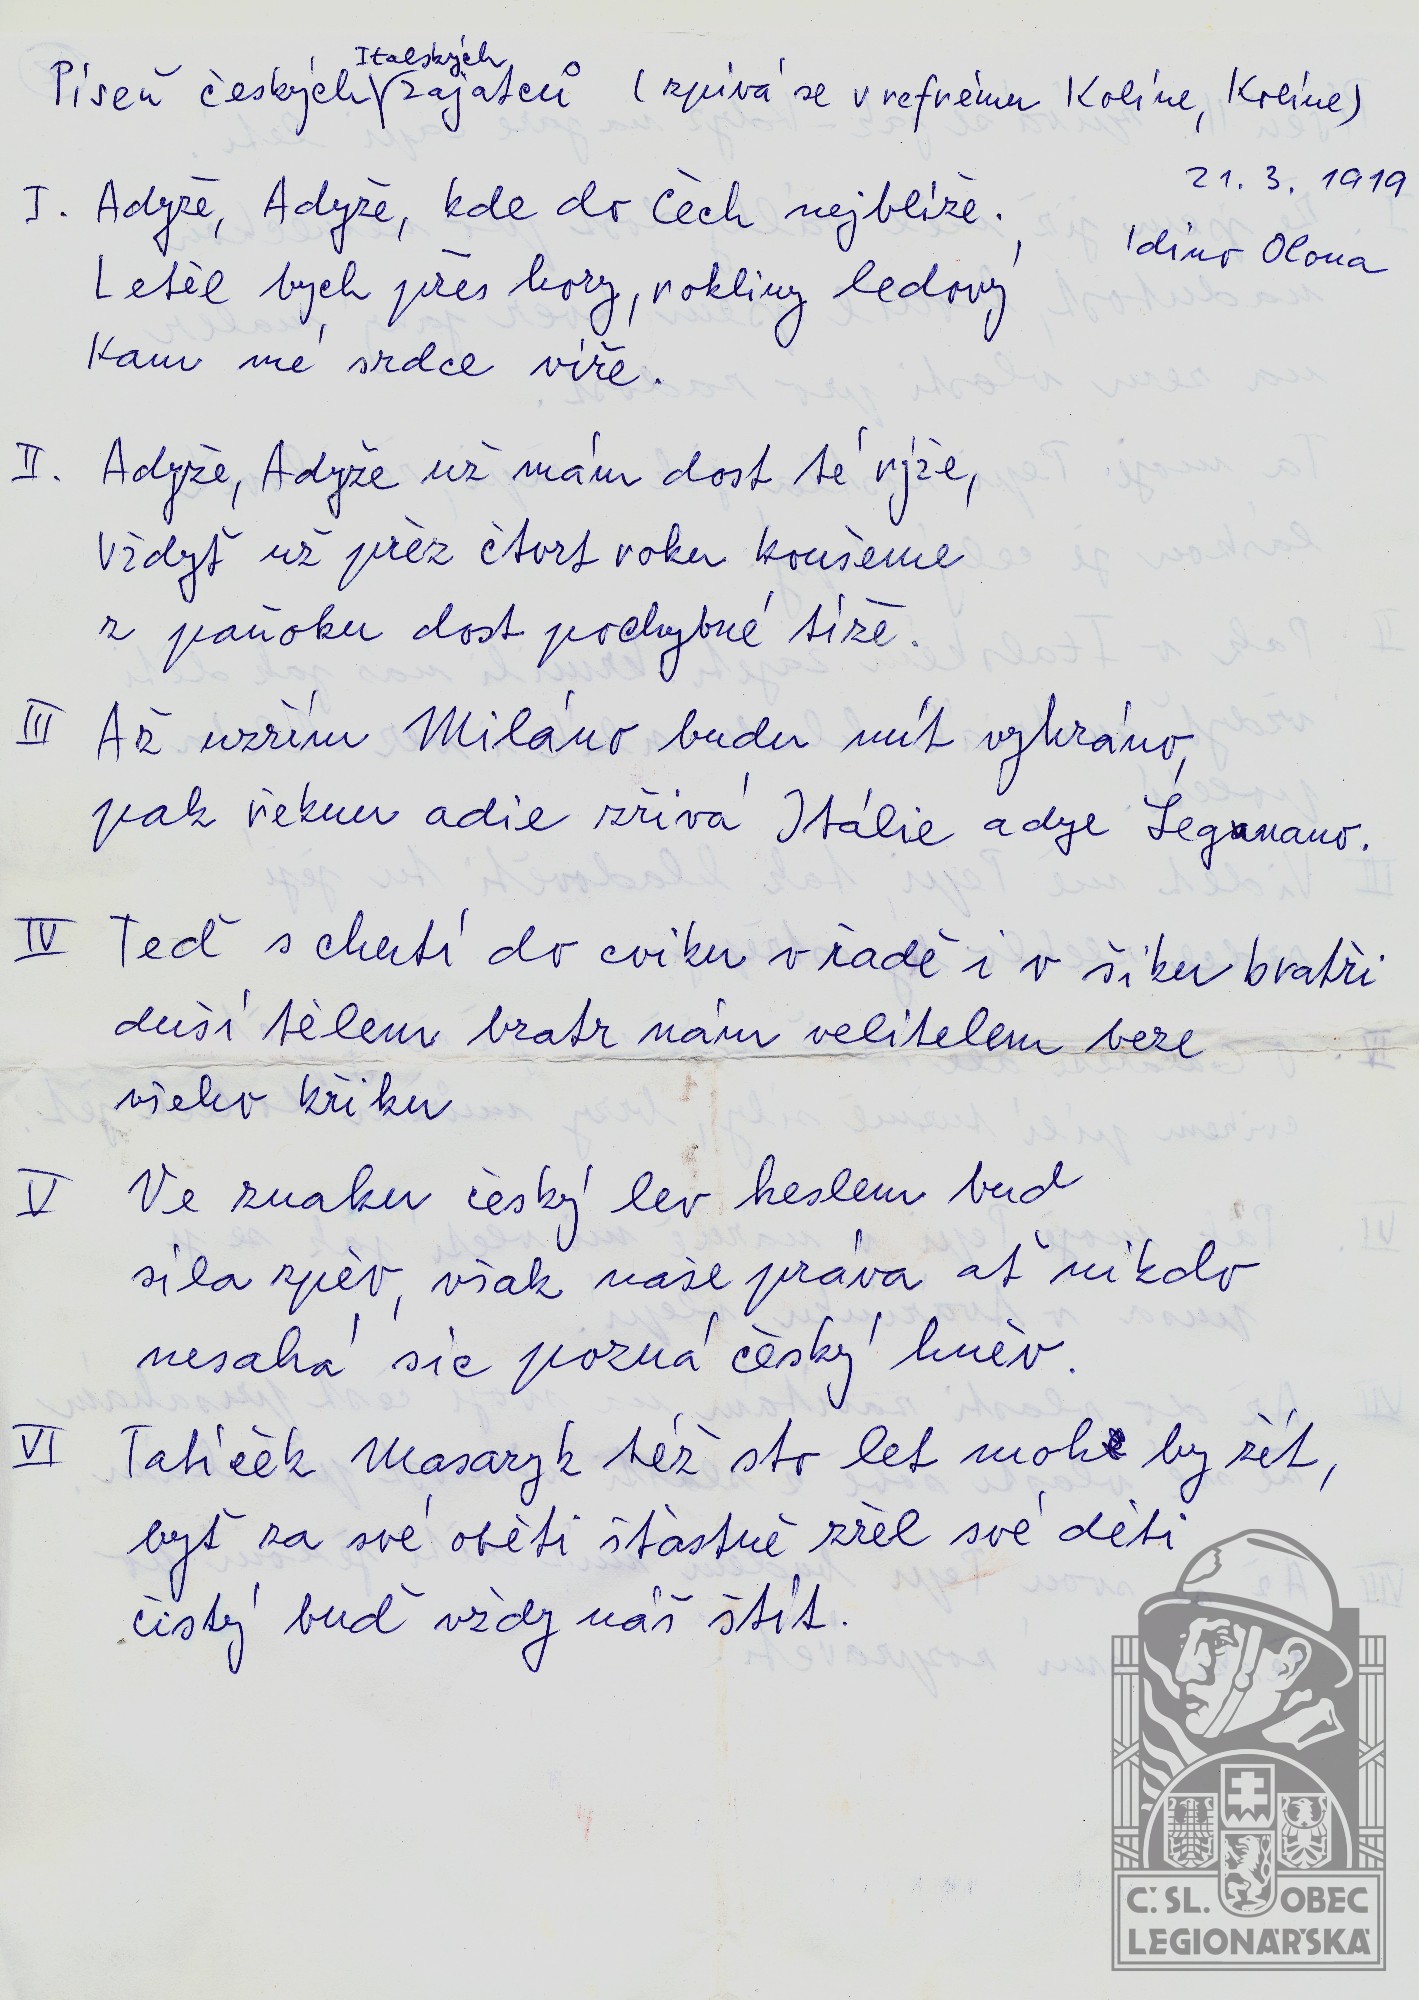 Píseň českých Italských zajatců (zpívá se v refrému Kolíne, Kolíne)
21. 3. 1919
Idino Olona
I. Adyžě, Adyžě, kde do Čech nejblíže.
Letěl bych přes hory, rokliny ledový,
Kam mé srdce víže.
II. Adyže, Adyže už mám dost té rýže,
Vždyť už přez čtvrt roku koušeme
z paňoku dost pochybné tíže.
III Až uzřím Miláno budu mít vyhráno,
pak řeknu adie zřivá Itálie adye Legnano.
IV Teď s chutí do cviku v řadě i v šiku bratři
duší tělem bratr nám velitelem beze
všeho křiku
V Ve znaku český lev heslem bud
síla zpěv, však naše práva ať nikdo
nesahá sic pozná český hněv.
VI Tatíček Masaryk též sto let moh by žít,
byť za své oběti šťastně zřel své děti
čistý buď vždy náš štít.
Č. SL. OBEC
LEGIONÁŘSKÁ